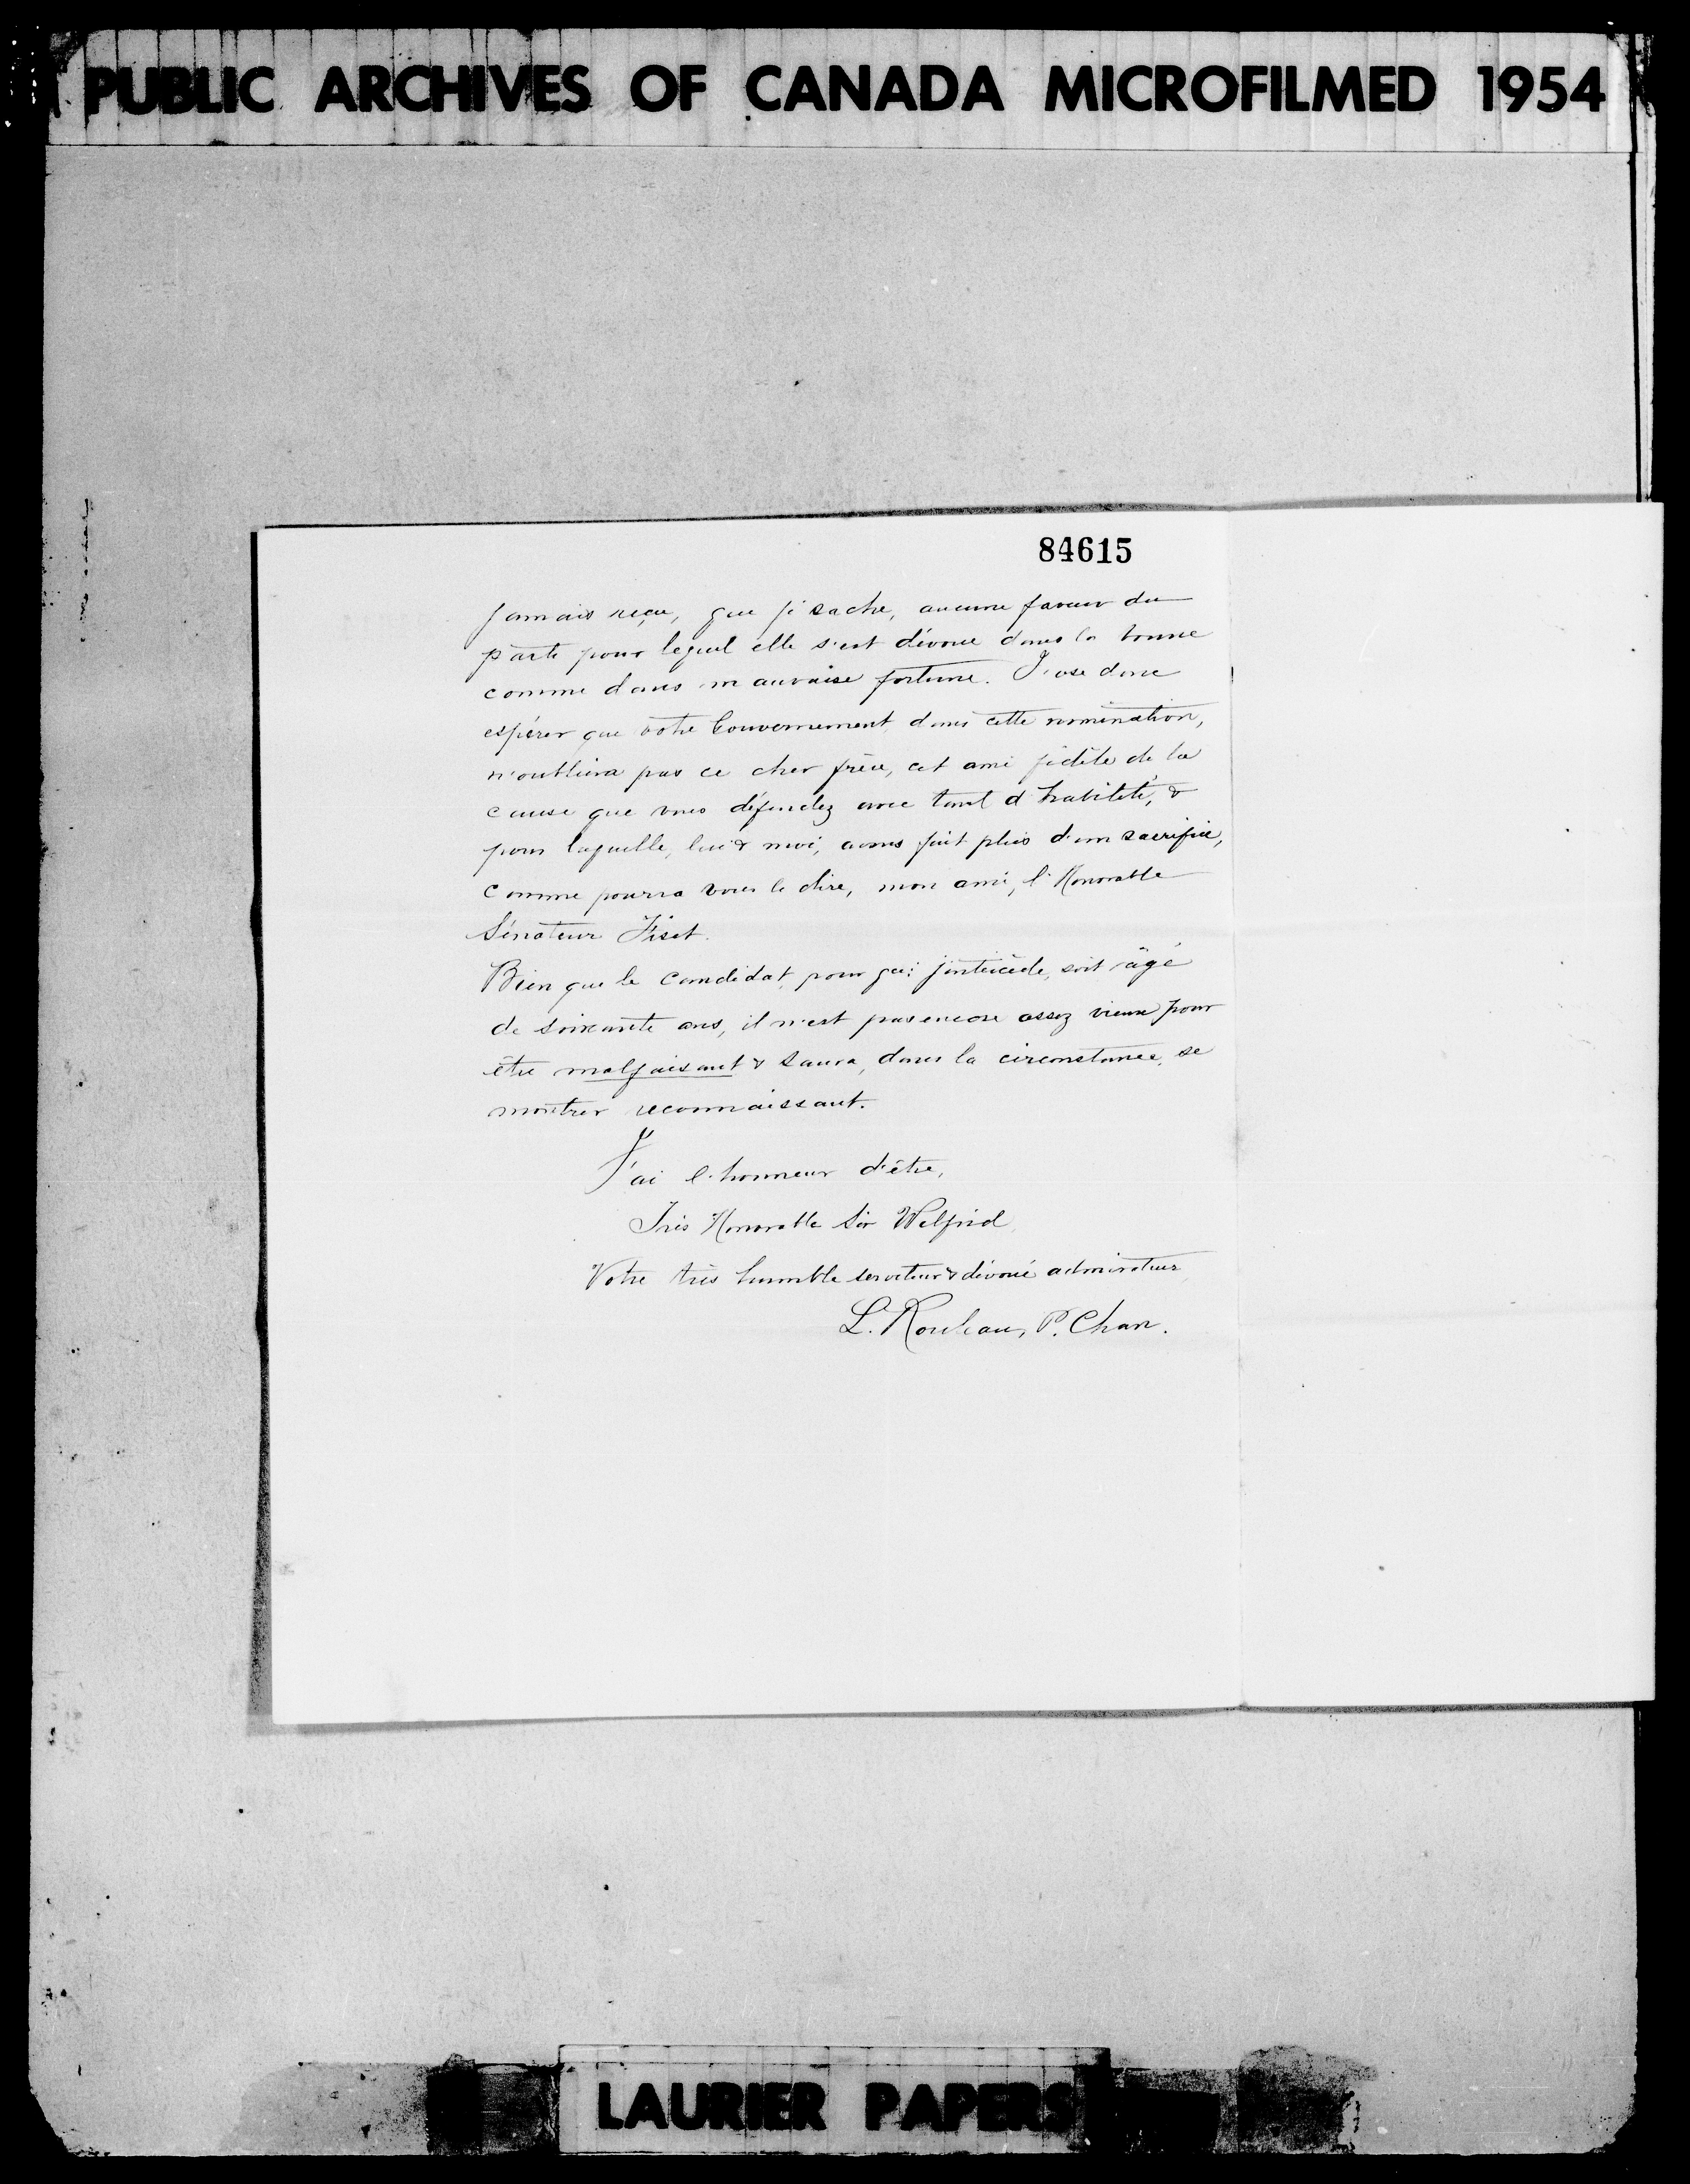 PUBLIC ARCHIVES OF CANADA MICROFILMED 1954
84615
jamais reçu, que je sache, aucune faveur du
parti pour lequel elle s'est dévoué dans la bonne
comme dans mauvaise fortune. J'ose donc
espérer que votre Gouvernement, dans cette nomination,
n'oubliera pas ce cher frère, cet ami fidèle de la
cause que vous défendez avec tant d'habileté, &
pour laquelle, lui & moi, avons fait plus d'un sacrifice,
comme pourra vous le dire, mon ami, l'Honorable
Sénateur Fiset.
Bien que le candidat, pour qui j'intercède, soit âgé
de soixante ans, il n'est pas encore assez vieux pour
être malfaisant & saura, dans la circonstance, se
montrer reconnaissant.
J'ai l'honneur d'être,
Très Honorable Sir Wilfrid,
Votre très humble serviteur & dévoué admirateur
L. Rouleau, P. Chan.
LAURIER PAPERS